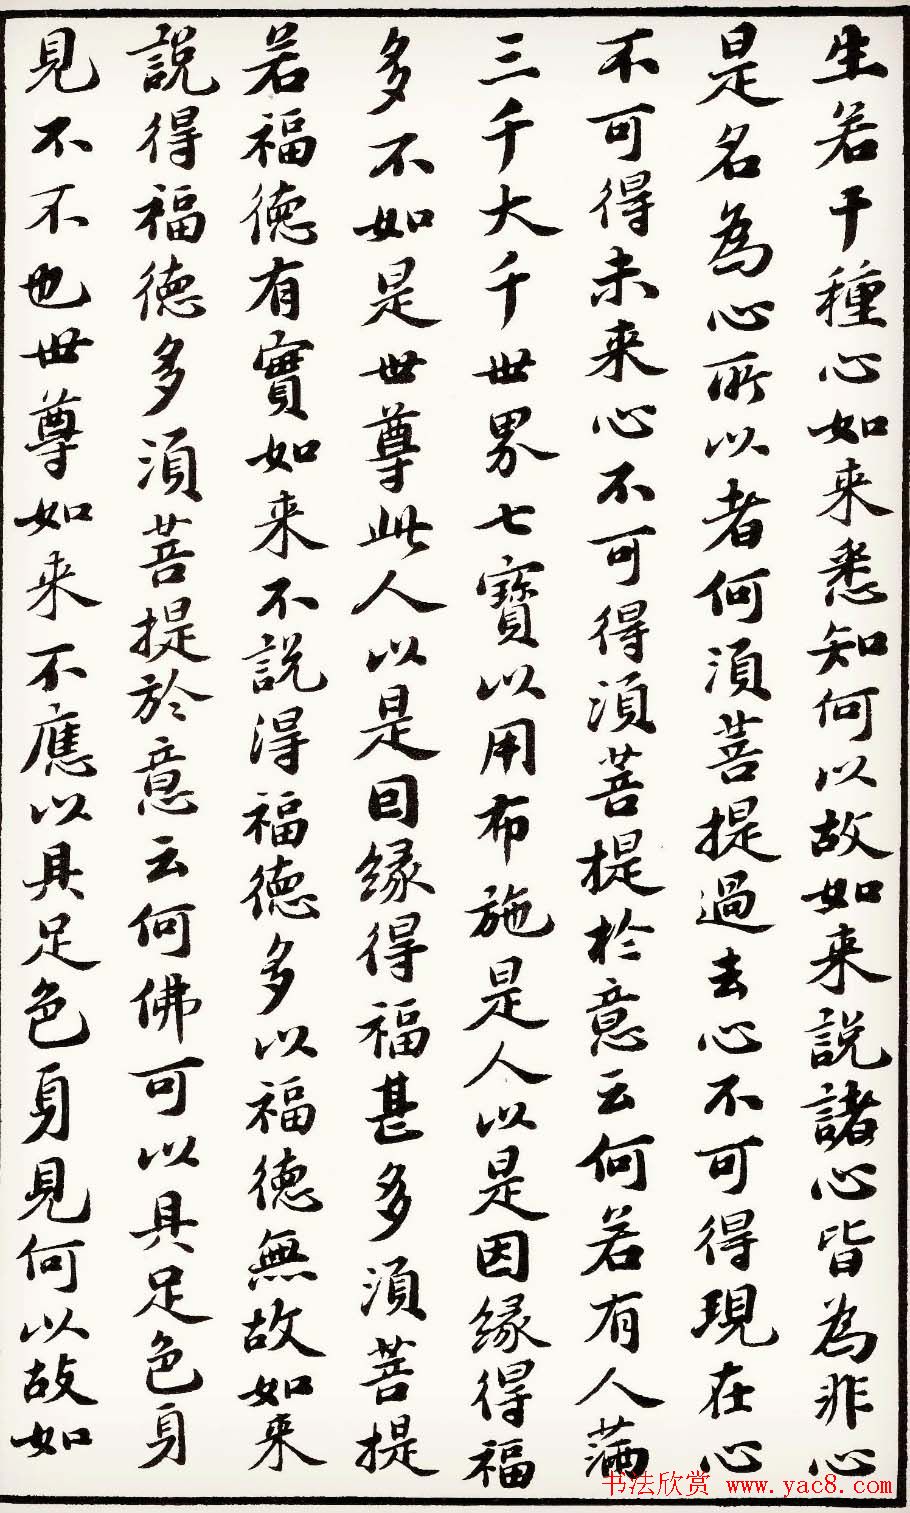 生若干種心如来悉知何以故如来説諸心皆為非心
是名為心所以者何須菩提過去心不可得現在心
不可得未来心不可得須菩提於意云何若有人滿
三千大千世界七寶以用布施是人以是因緣得福
多不如是世尊此人以是囙緣得福甚多須菩提
若福德有實如来不説得福德多以福德無故如来
説得福德多須菩提於意云何佛可以具足色身
見不不也世尊如来不應以具足色身見何以故如
书法欣赏 www.yac8.com